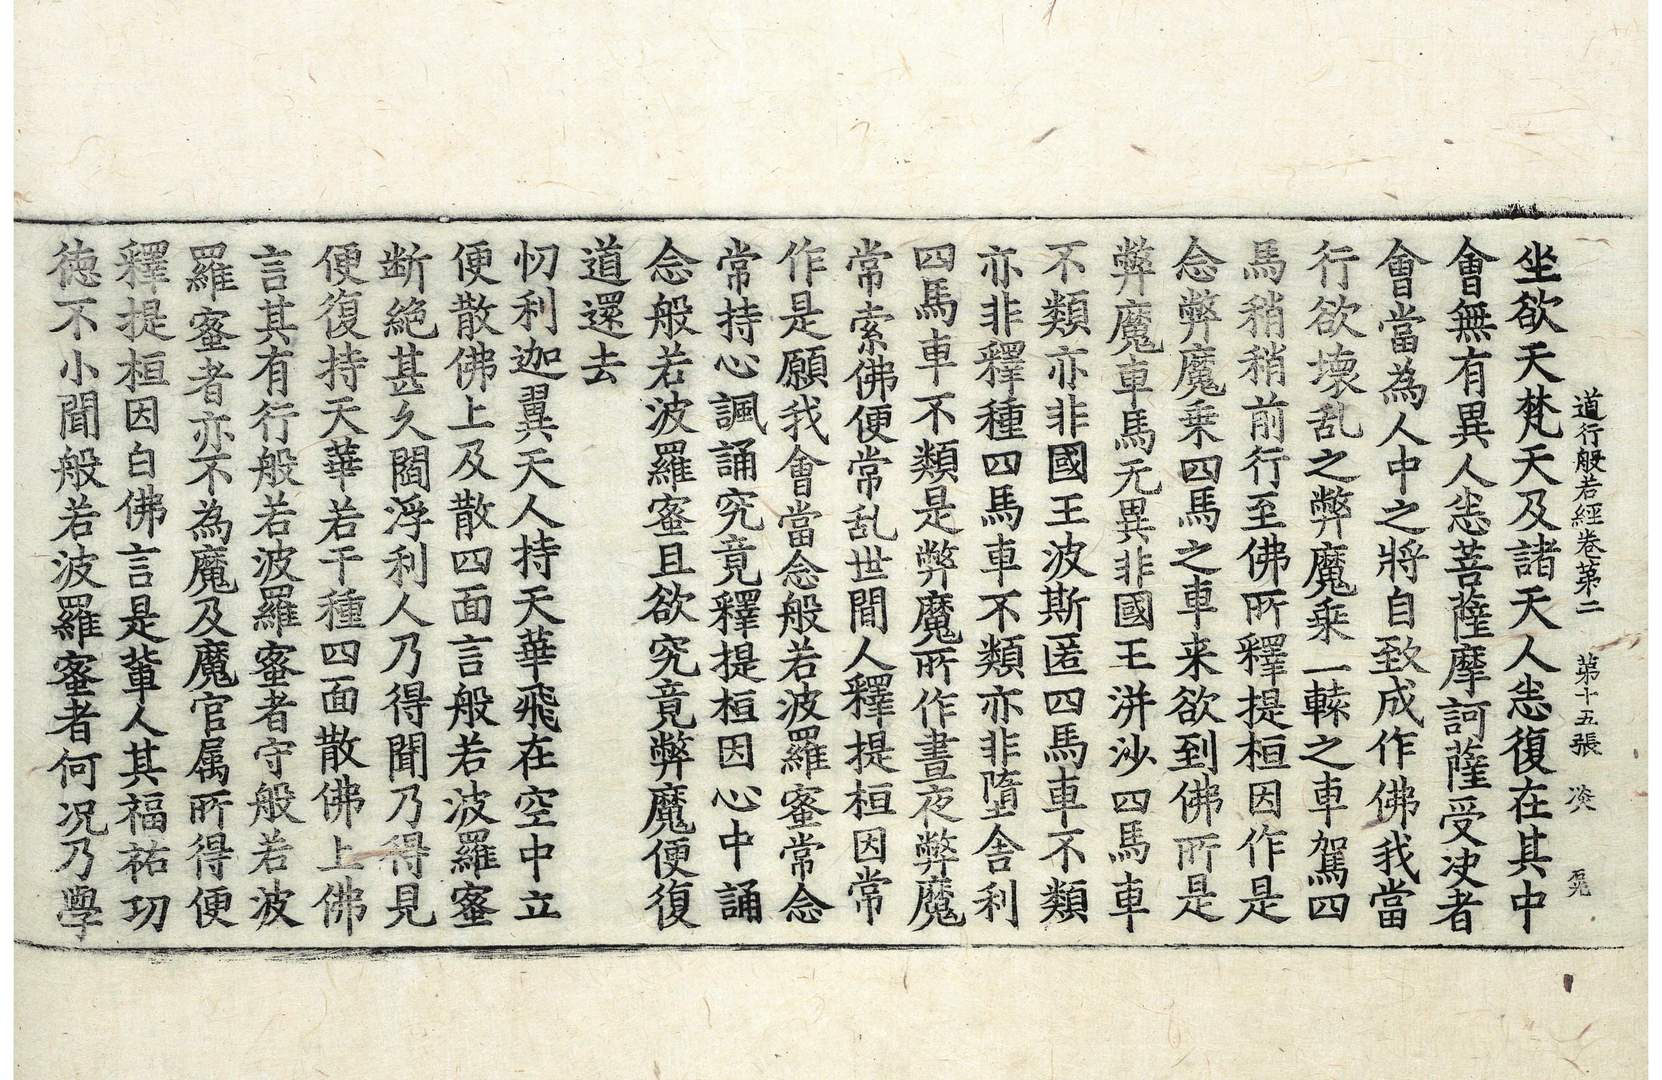 道行般若經卷第二　第十五張　淡
坐欲天梵天及諸天人恚復在其中
會無有異人恚菩薩摩訶薩受决者
會當為人中之將自致成作佛我當
行欲壊乱之弊魔乗一轅之車駕四
馬稍稍前行至佛所釋提桓因作是
念弊魔乗四馬之車来欲到佛所是
弊魔車馬无異非國王洴沙四馬車
不類亦非國王波斯匿四馬車不類
亦非釋種四馬車不類亦非墮舎利
四馬車不類是弊魔所作晝夜弊魔
常索佛便常乱世間人釋提桓因常
作是願我會當念般若波羅蜜常念
常持心諷誦究竟釋提桓因心中誦
念般若波羅蜜且欲究竟弊魔便復
道還去
忉利迦翼天人持天華飛在空中立
便散佛上及散四面言般若波羅蜜
断絶甚久閻浮利人乃得聞乃得見
便復持天華若干種四面散佛上佛
言其有行般若波羅蜜者守般若波
羅蜜者亦不為魔及魔官属所得便
釋提桓因白佛言是輩人其福祐功
徳不小聞般若波羅蜜者何况乃學